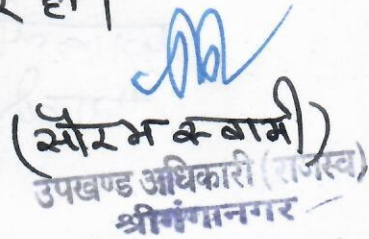 र हो।
(सौरभ स्वामी)
उपखण्ड अधिकारी (राजस्व)
श्रीगंगानगर